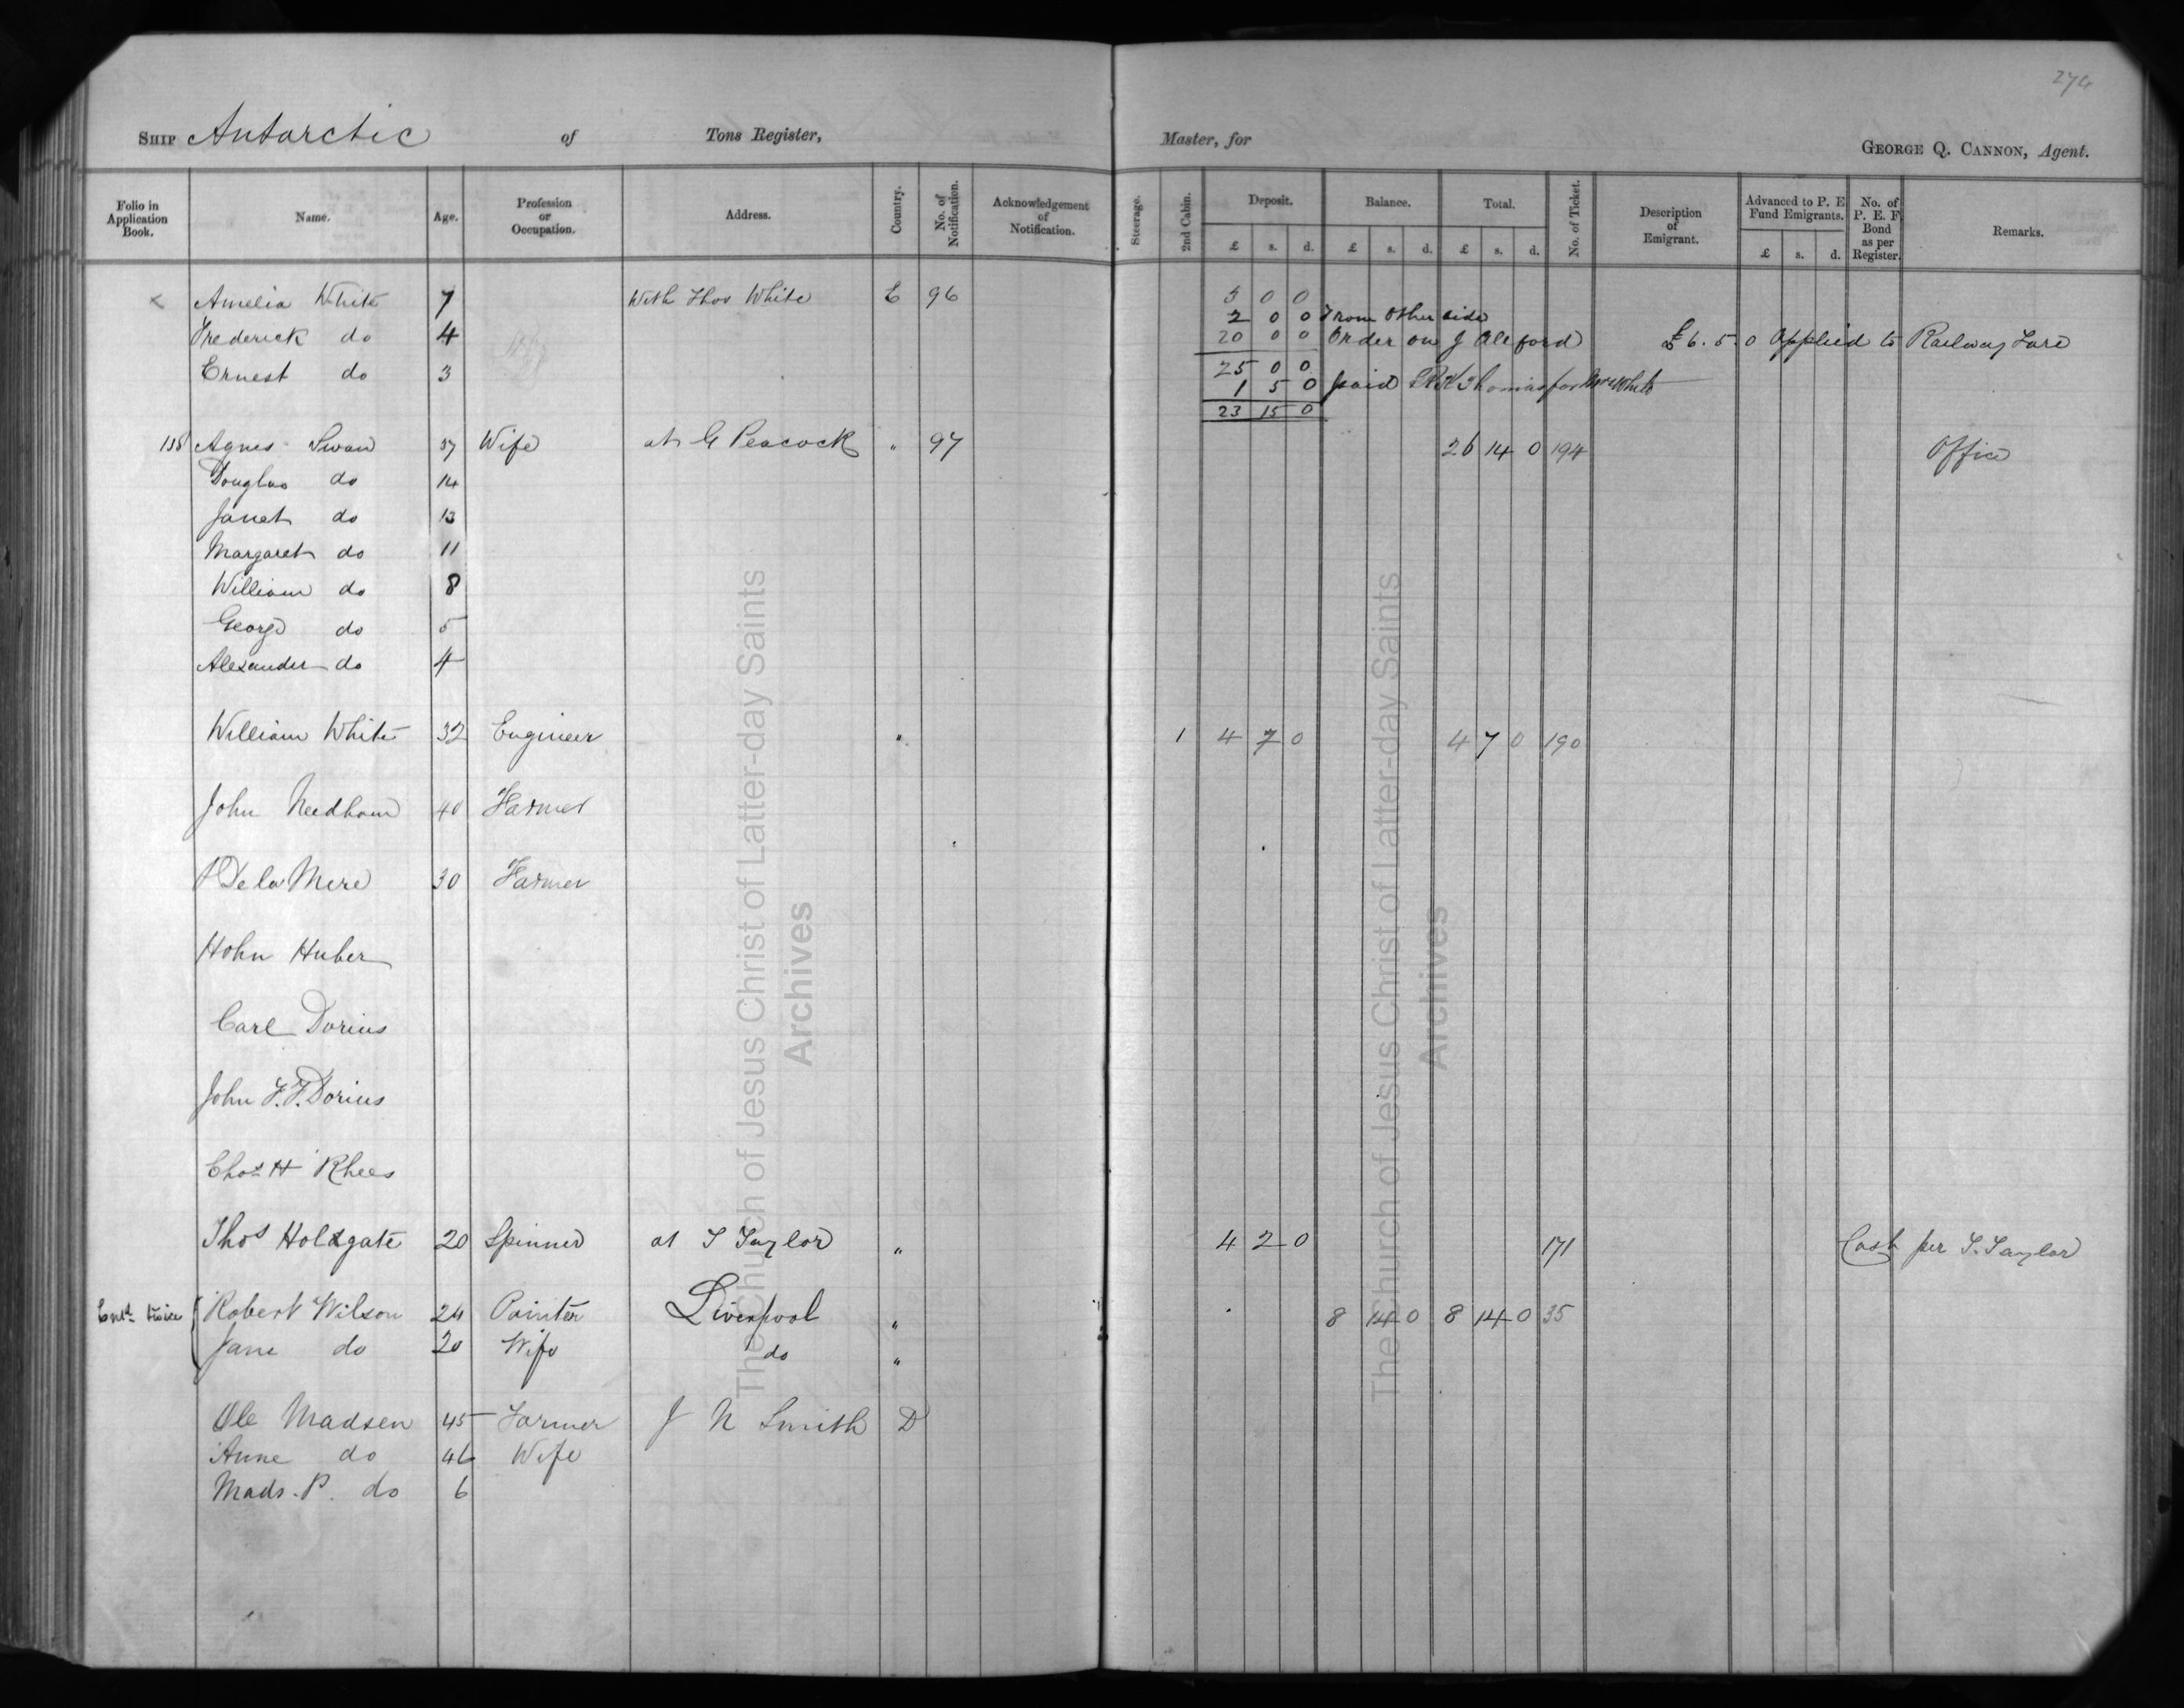 274
SHIP Antarctic of Tons Register, Master, for GEORGE Q. CANNON, Agent.
Folio in Application Book. Name. Age. Profession or Occupation. Address. Country. No. of Notification. Acknowledgement of Notification. Steerage. 2nd Cabin. Deposit. Balance. Total. No. of Ticket. Description of Emigrant. Advanced to P. E. Fund Emigrants. No. of P. E. F. Bond as per Register. Remarks.
£ s. d. £ s. d. £ s. d. £ s. d.
Amelia White 7 With Thos White E 96 3 0 0
2 0 0 From Other side
Frederick do 4 20 0 0 Order on J £6. 5. 0 Applied to Railway Fare
Ernest do 3 25 0 0
1 5 0 paid Thomas for White
23 15 0
138 Agnes Swan 37 Wife at G Peacock " 97 26 14 0 194 Office
Douglas do 14
Janet do 13
Margaret do 11
William do 8
George do 5
Alexander do 4
William White 32 Engineer " 1 4 7 0 4 7 0 190
John Needham 40 Farmer
De la Mere 30 Farmer
Hohn Huber
Carl Dorius
John F. F. Dorius
Chas H Rhees
Thos Holdgate 20 Spinner at T Taylor " 4 2 0 171 Cash per T. Taylor
Entd twice Robert Wilson 24 Painter Liverpool " 8 14 0 8 14 0 35
Jane do 20 Wife do "
Ole Madsen 45 Farmer J N Smith D
Anne do 46 Wife
Mads. P. do 6
The Church of Jesus Christ of Latter-day Saints
Archives
The Church of Jesus Christ of Latter-day Saints
Archives